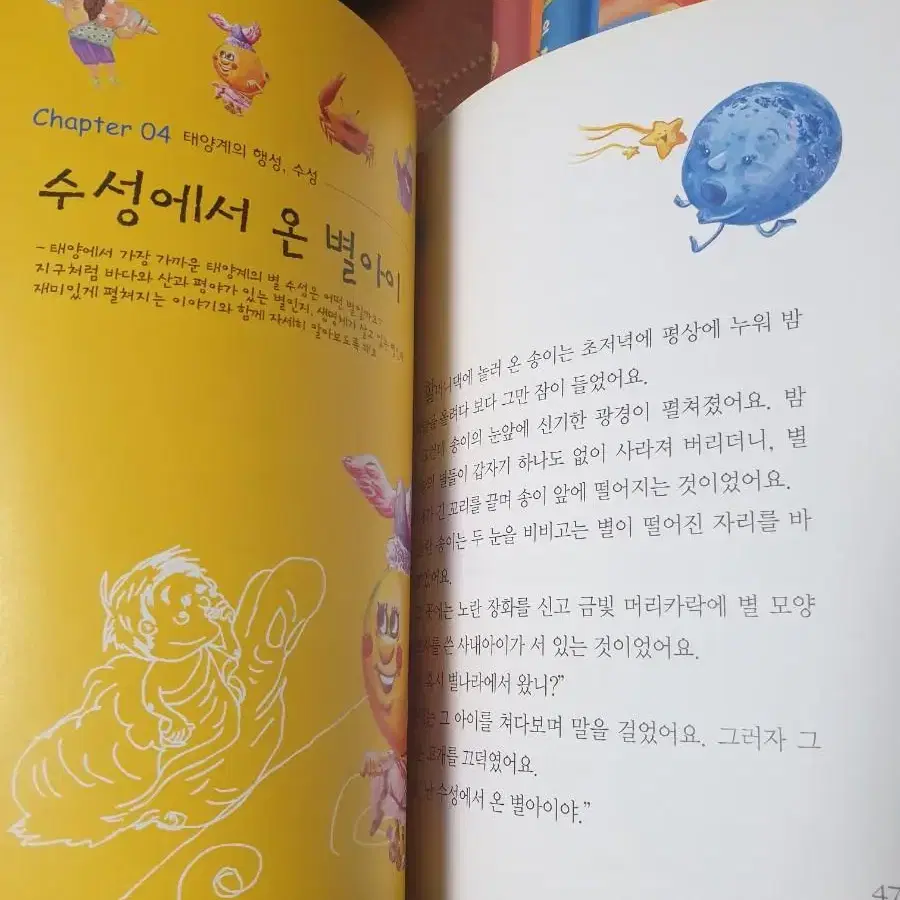 Chapter 04 태양계의 행성, 수성
수성에서 온 별아이
- 태양에서 가장 가까운 태양계의 별 수성은 어떤 별일까요?
지구처럼 바다와 산과 평야가 있는 별인지, 생명체가 살고 있는
재미있게 펼쳐지는 이야기와 함께 자세히 알아보도록 해요
할머니댁에 놀러 온 송이는 초저녁에 평상에 누워 밤
올려다 보다 그만 잠이 들었어요.
송이의 눈앞에 신기한 광경이 펼쳐졌어요. 밤
별들이 갑자기 하나도 없이 사라져 버리더니, 별
긴 꼬리를 끌며 송이 앞에 떨어지는 것이었어요.
송이는 두 눈을 비비고는 별이 떨어진 자리를 바
노란 장화를 신고 금빛 머리카락에 별 모양
쓴 사내아이가 서 있는 것이었어요.
혹시 별나라에서 왔니?"
그 아이를 쳐다보며 말을 걸었어요. 그러자 그
고개를 끄덕였어요.
난 수성에서 온 별아이야."
47